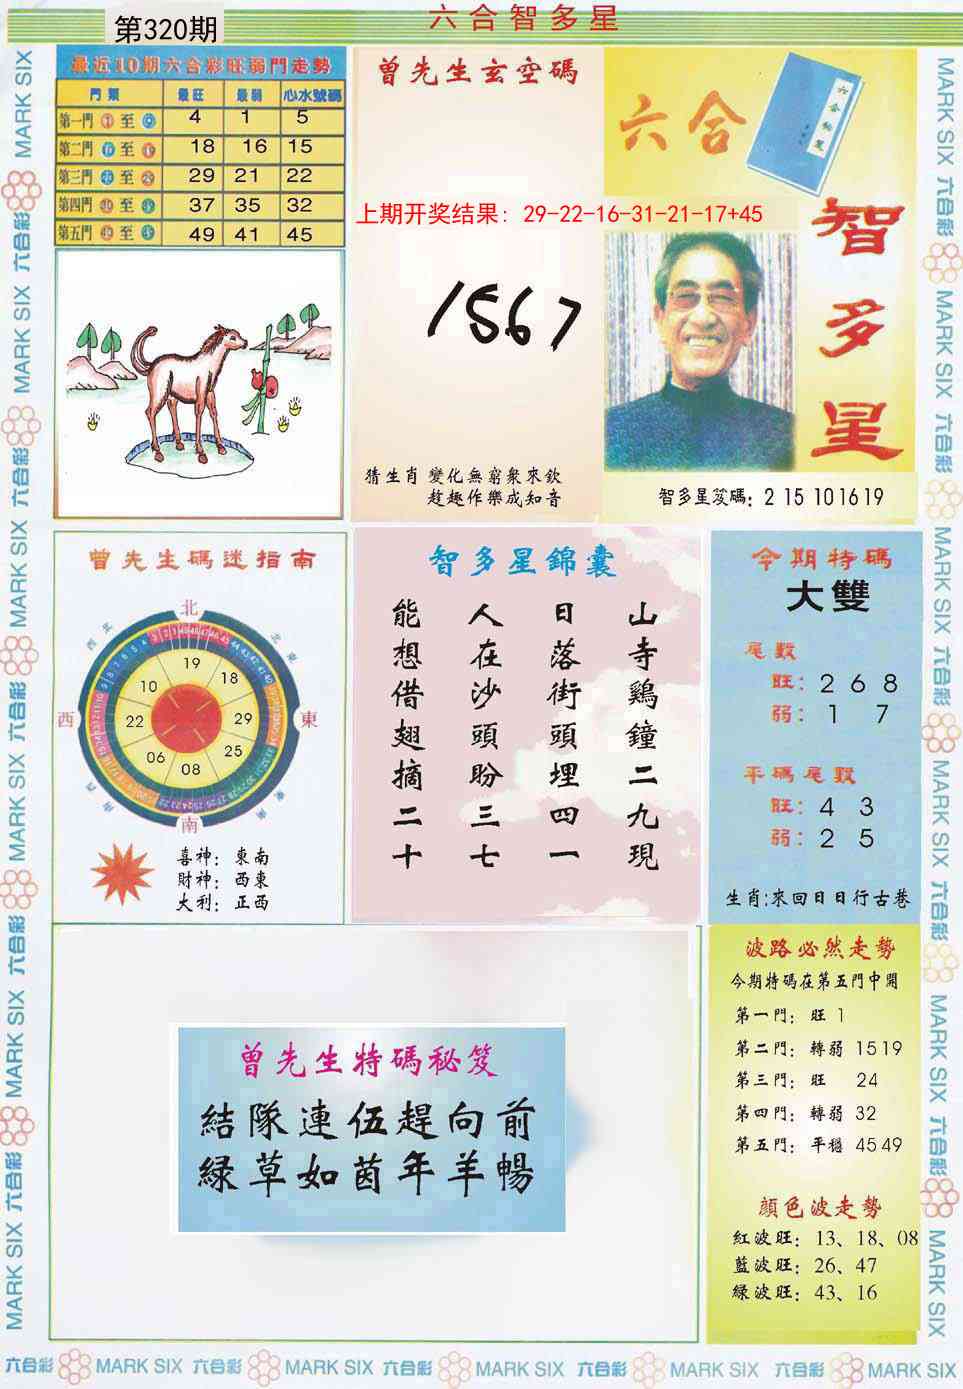 六合智多星
第320期
最近10期六合彩旺弱門走勢
門類 最旺 最弱 心水號碼
第一門 至 4 1 5
第二門 至 18 16 15
第三門 至 29 21 22
第四門 至 37 35 32
第五門 至 49 41 45
曾先生玄空碼
上期开奖结果：29-22-16-31-21-17+45
1567
猜生肖 變化無窮衆來欽
趁趣作樂成知音
六合
智多星
智多星笈碼：2 15 10 16 19
曾先生碼迷指南
北
西北
東北
西
東
西南
東南
南
19
18
29
25
08
06
22
10
喜神：東南
財神：西東
大利：正西
智多星錦囊
山寺鷄鐘二九現
日落街頭埋四一
人在沙頭盼三七
能想借翅摘二十
今期特碼
大雙
尾數
旺：2 6 8
弱：1 7
平碼尾數
旺：4 3
弱：2 5
生肖:來回日日行古巷
曾先生特碼秘笈
結隊連伍趕向前
緑草如茵年羊暢
波路必然走勢
今期特碼在第五門中開
第一門：旺 1
第二門：轉弱 15 19
第三門：旺 24
第四門：轉弱 32
第五門：平穩 45 49
顔色波走勢
紅波旺：13、18、08
藍波旺：26、47
緑波旺：43、16
MARK SIX 六合彩 MARK SIX 六合彩 MARK SIX 六合彩 MARK SIX 六合彩 MARK SIX
六合彩 MARK SIX 六合彩 MARK SIX 六合彩 MARK SIX 六合彩 MARK SIX 六合彩 MARK SIX